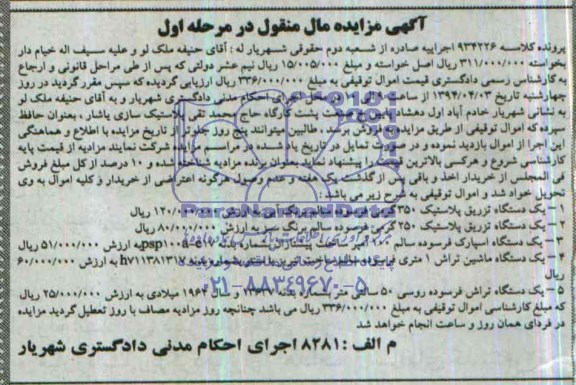 آگهی مزایده مال منقول در مرحله اول
پرونده کلاسه ۹۳۴۲۲۶ اجراییه صادره از شعبه دوم حقوقی شهریار له : آقای حنیفه ملک لو و علیه سیف اله خیام دار
بخواسته ۳۱۱/۰۰۰/۰۰۰ ریال اصل خواسته و مبلغ ۱۵/۰۰۵/۰۰۰ ریال نیم عشر دولتی که پس از طی مراحل قانونی و ارجاع
به کارشناس رسمی دادگستری قیمت اموال توقیفی به مبلغ ۳۳۶/۰۰۰/۰۰۰ ریال ارزیابی گردیده که سپس مقرر گردید در روز
چهارشنبه تاریخ ۱۳۹۴/۰۴/۰۳ از ساعت احکام مدنی دادگستری شهریار و به آقای حنیفه ملک لو
به نشانی شهریار خادم آباد اول دهشاد پشت کارگاه حاج تقی پلاستیک سازی یاشار ، بعنوان حافظ
سپرده که اموال توقیفی از طریق مزایده به فروش برسد ، طالبین میتوانند پنج روز جلوتر از تاریخ مزایده با اطلاع و هماهنگی
این اجرا از اموال بازدید نموده و در صورت تمایل در تاریخ یاد شده در مراسم مزایده شرکت نمایند مزایده از قیمت پایه
کارشناسی شروع و هرکسی بالاترین قیمت را پیشنهاد نماید بعنوان برنده مزایده شناخته شده و ۱۰ درصد از کل مبلغ فروش
فی المجلس از خریدار اخذ و باقی پس از گذشت یک هفته و عدم وصول هرگونه اعتراضی از خریدار و کلیه اموال به وی
تحویل خواد شد و اموال توقیفی به شرح زیر می باشد :
۱ - یک دستگاه تزریق پلاستیک ۳۵۰ گرمی فرسوده سالم برنگ آبی به ارزش ۱۲۰/۰۰۰/۰۰۰ ریال
۲ - یک دستگاه تزریق پلاستیک ۲۵۰ گرمی فرسوده سالم برنگ سبز به ارزش ۸۰/۰۰۰/۰۰۰ ریال
۳ - یک دستگاه اسپارک فرسوده سالم به ارزش ۵۱/۰۰۰/۰۰۰ ریال
۴ - یک دستگاه ماشین تراش ۱ متری فرسوده سالم به ارزش ۶۰/۰۰۰/۰۰۰
ریال
۵- یک دستگاه تراش فرسوده روسی ۵۰ سانتی متر بشماره بدنه سال ۱۹۶۴ میلادی به ارزش ۲۵/۰۰۰/۰۰۰ ریال
که مبلغ کارشناسی اموال توقیفی به مبلغ ۳۳۶/۰۰۰/۰۰۰ ریال می باشد چنانچه روز مزایده مصاف با روز تعطیل گردید مزایده
در فردای همان روز و ساعت انجام خواهد شد
م الف : ۸۲۸۱ اجرای احکام مدنی دادگستری شهریار
ParsNamadData
۰۲۱-۸۸۳۴۹۶۷۰-۵